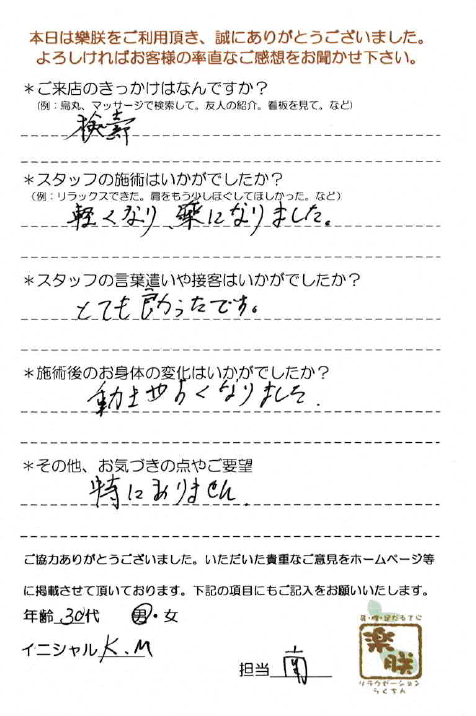 本日は樂朕をご利用頂き、誠にありがとうございました。
よろしければお客様の率直なご感想をお聞かせ下さい。
＊ご来店のきっかけはなんですか？
（例：烏丸、マッサージで検索して。友人の紹介。看板を見て。など）
検索
＊スタッフの施術はいかがでしたか？
（例：リラックスできた。肩をもう少しほぐしてほしかった。など）
軽くなり、楽になりました。
＊スタッフの言葉遣いや接客はいかがでしたか？
とても良かったです。
＊施術後のお身体の変化はいかがでしたか？
動きやすくなりました.
＊その他、お気づきの点やご要望
特にありません.
ご協力ありがとうございました。いただいた貴重なご意見をホームページ等
に掲載させて頂いております。下記の項目にもご記入をお願いいたします。
年齢 30代 男・女
イニシャル K.M
担当 南
楽
朕
リラクゼーション
らくちん